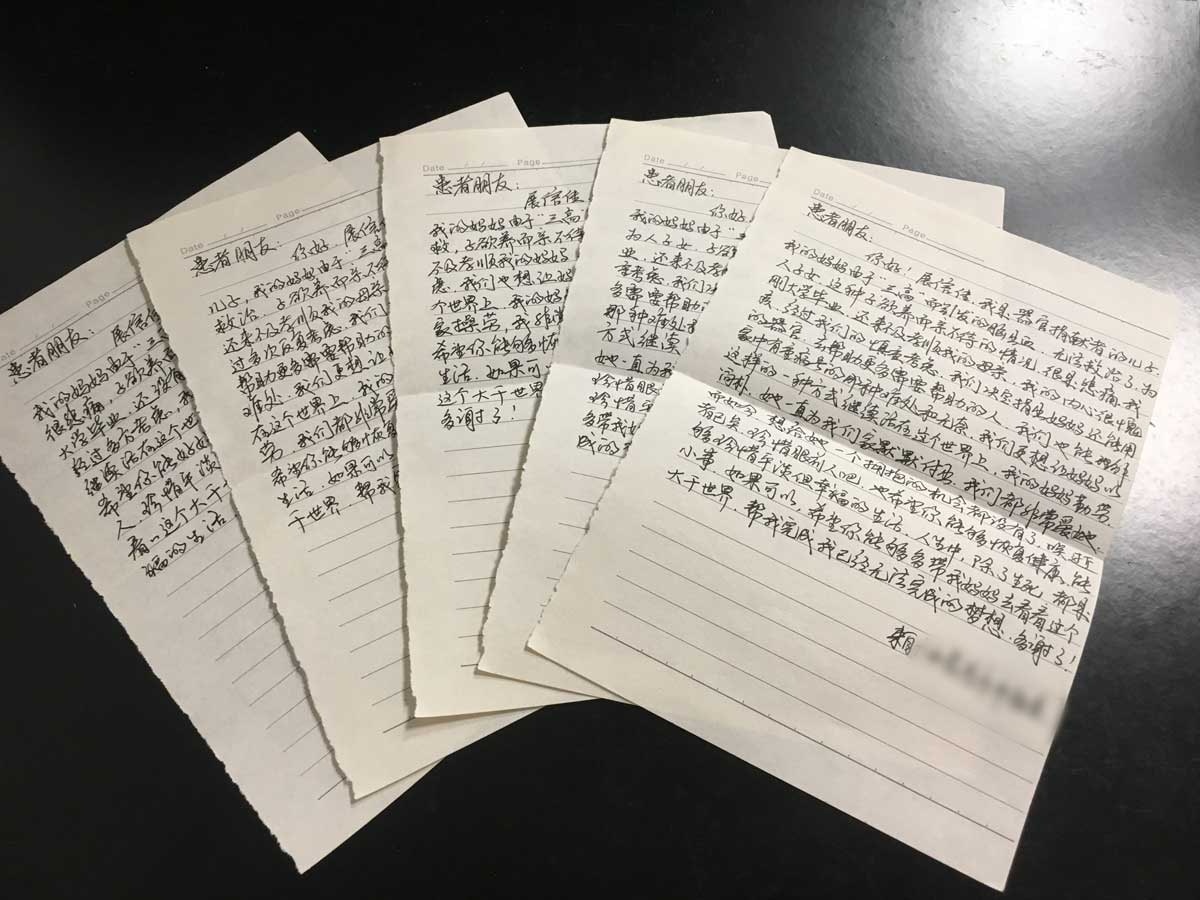 Date / / Page
患者朋友：
展信佳
我的妈妈由于"三高
很悲痛，子欲养而
大学毕业，还没有
经过多方考虑，我
继续活在这个世
希望你能好好
人，珍惜平淡
看一看这个大千
福的生活
Date / / Page
患者朋友：
你好，展信佳
儿子，我的妈妈由于"三高
救治，子欲养而亲不待
还来不及孝顺我的母亲
过多次反复考虑，我们
帮助更多需要帮助的
难处，我们更想让
在这个世界上，我的
劳，我们都非常
希望你能够恢复
生活，如果可以
千世界，帮我
Date / / Page
患者朋友：
展信佳
我的妈妈由于"三高
救，子欲养而亲不待
不及孝顺我的妈妈
虑，我们也想让妈
个世界上，我的妈
家操劳，我非常
希望你能够恢
生活，如果可
这个大千世界
多谢了！
Date / / Page
患者朋友：
你好，
我的妈妈由于"三
为人子女，子欲
业，还来不及孝
重考虑，我们
多需要帮助
那种难处
方式继续
她一直为我
珍惜眼
珍惜平
多带我妈
成的
Date / / Page
患者朋友：
你好！展信佳，我是器官捐献者的儿子，
我的妈妈由于"三高"而引发的脑出血，无法救治了，为
人子女，这种子欲养而亲不待的情况，很是绝痛，我
刚大学毕业，还来不及孝顺我的母亲，我的内心很内疚
经过我们的慎重考虑，我们决定捐出妈妈还能用
的器官，去帮助更多需要帮助的人，我们也能理解
家中有重病号的那种痛处和无奈，我们更想让妈妈以
这样的一种方式继续活在这个世界上，我的妈妈勤劳、
简朴，她一直为我们家默默付出，我们都非常爱她，
而如今，想 她一个拥抱的机会都没有了，唉，
已矣，珍惜眼前人吧，也希望你能够恢复健康，能
够珍惜平淡但幸福的生活，人生中，除了生死，都是
小事，如果可以，希望你能够多带我妈妈去看看这个
大千世界，帮我完成我已经无法完成的梦想，多谢了！
来自